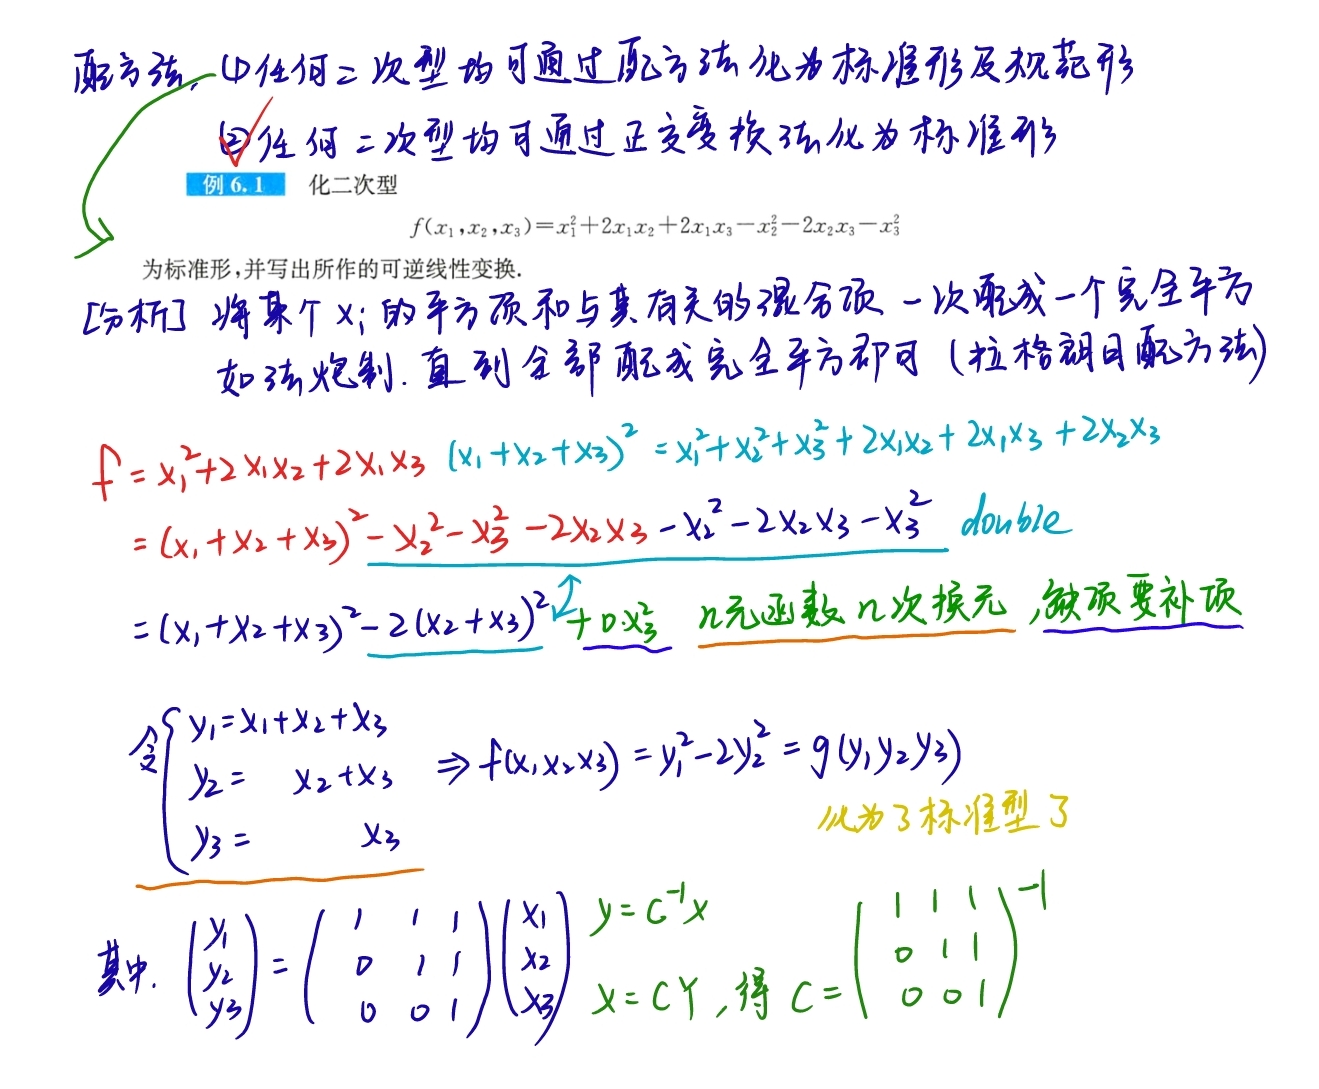 配方法,①任何二次型均可通过配方法化为标准形及规范形
②任何二次型均可通过正交变换法化为标准形
例6.1 化二次型
f(x₁,x₂,x₃)=x₁²+2x₁x₂+2x₁x₃-x₂²-2x₂x₃-x₃²
为标准形,并写出所作的可逆线性变换.
[分析] 将某个xᵢ的平方项和与其有关的混合项一次配成一个完全平方
如法炮制.直到全部配成完全平方即可(拉格朗日配方法)
f=x₁²+2x₁x₂+2x₁x₃ (x₁+x₂+x₃)²=x₁²+x₂²+x₃²+2x₁x₂+2x₁x₃+2x₂x₃
=(x₁+x₂+x₃)²-x₂²-x₃²-2x₂x₃-x₂²-2x₂x₃-x₃² double
=(x₁+x₂+x₃)²-2(x₂+x₃)²+0·x₃² n元函数n次换元,缺项要补项
令{y₁=x₁+x₂+x₃
y₂= x₂+x₃ ⇒f(x₁x₂x₃)=y₁²-2y₂²=g(y₁y₂y₃)
y₃= x₃ 化为了标准型了
其中.(y₁ y₂ y₃)=(1 1 1 0 1 1 0 0 1)(x₁ x₂ x₃) y=C⁻¹x
x=CY,得C=(1 1 1 0 1 1 0 0 1)⁻¹